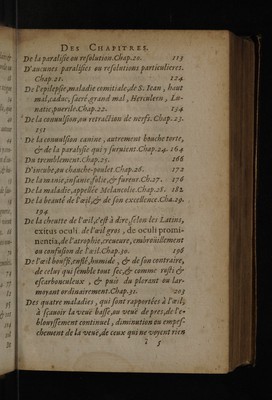 DES CHAPITRES.
De la paralisie ou resolution. Chap.20. 115
D'aucunes paralisies ou resolutions particulieres.
Chap.21. 124
De l'epilepsie, maladie comitiale, de S. Iean, haut
mal, caduc, sacré, grand mal, Herculeen, Lu-
natic, puerile. Chap.22. 134
De la conuulsion, ou retraction de nerfs. Chap.23.
151
De la conuulsion canine, autrement bouche torte,
& de la paralisie qui y suruient. Chap.24. 164
Du tremblement. Chap.25. 166
D'incube, ou chauche-poulet Chap.26. 172
De la manie, insanie, folie, & fureur. Ch.27. 176
De la maladie, appellée Melancolie. Chap.28. 182
De la beauté de l'œil, & de son excellence. Cha.29.
194
De la cheutte de l'œil, c'est à dire, selon les Latins,
exitus oculi, de l'œil gros, de oculi promi-
nentia, de l'atrophie, creueure, embrouillement
ou confusion de l'œil. Chap.30. 198
De l'œil bouffi, enflé, humide, & de son contraire,
de celuy qui semble tout sec, & comme rosti &
escarbouculeux, & puis du plerant ou lar-
moyant ordinairement. Chap.31. 203
Des quatre maladies, qui sont rapportées à l'œil,
à sçauoir la veuë basse, ou veuë de pres, de l'e-
blouyssement continuel, diminution ou empes-
chement de la veuë, de ceux qui ne voyent rien